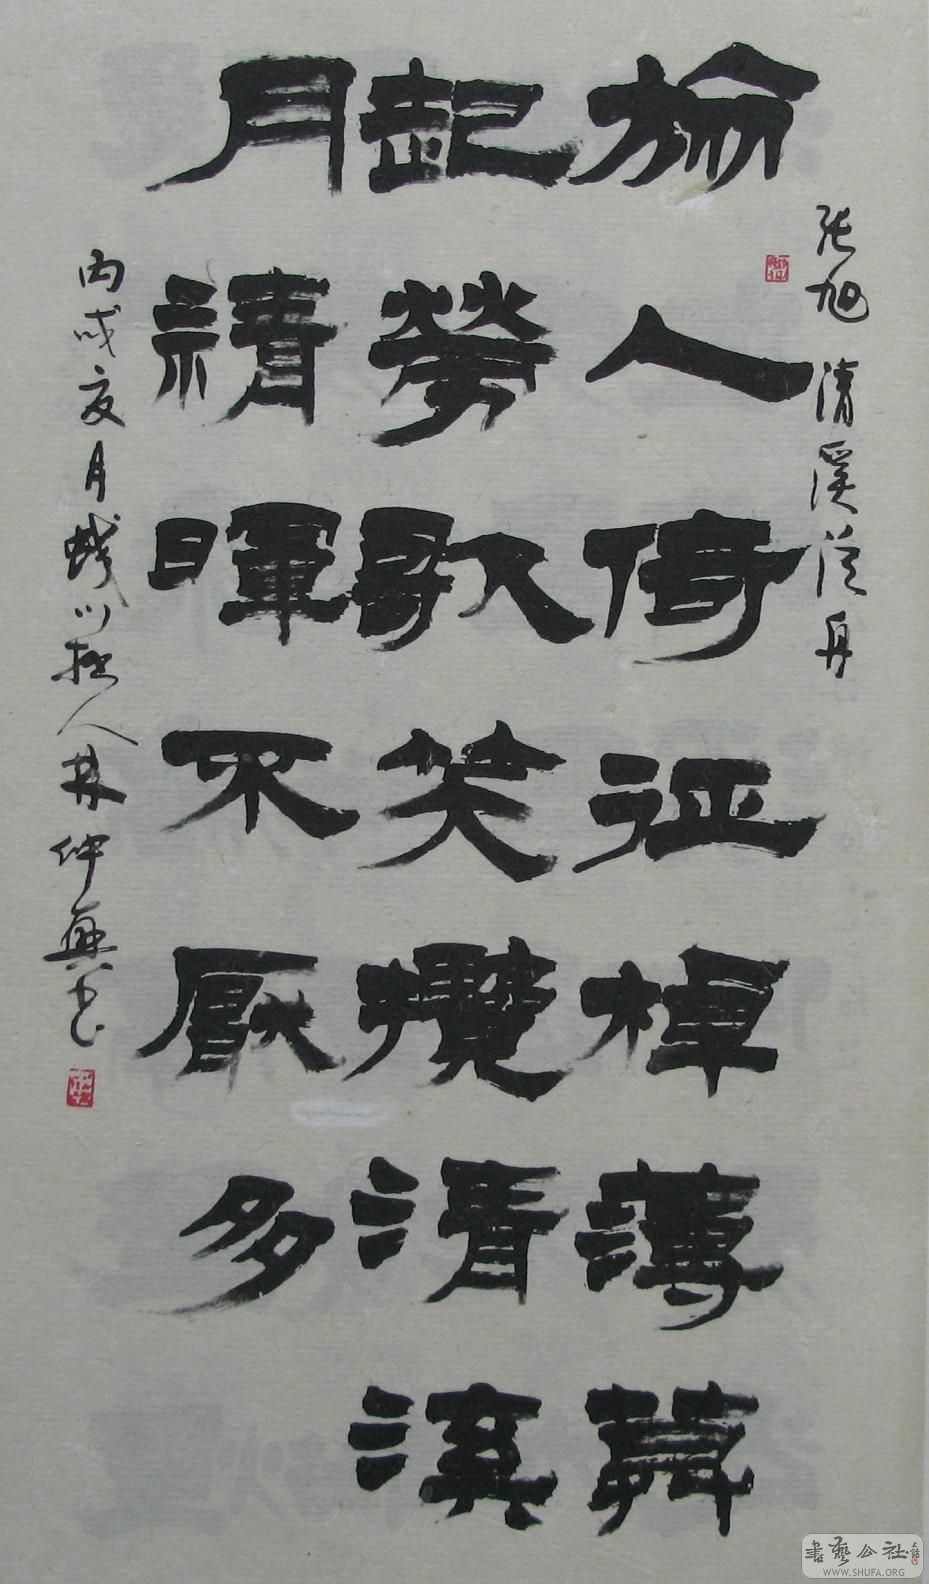 张旭 清溪泛舟
旅人倚征棹薄莫
起勞歌笑攬清溪
月清暉不厭多
丙戌夏月川人林仲興书
書藝公社
WWW.SHUFA.ORG